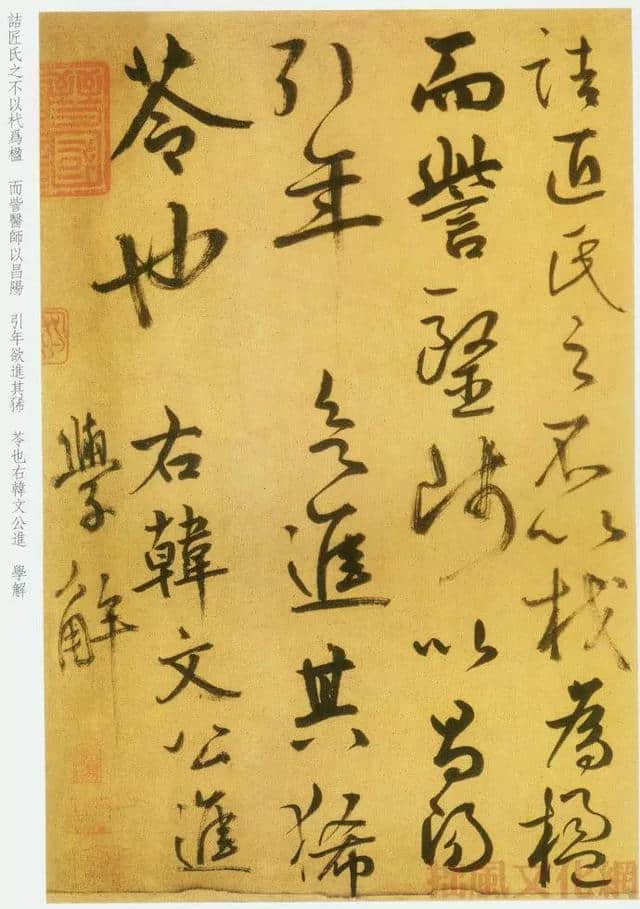 詰匠氏之不以杙為楹
而訾醫師以昌陽
引年 欲進其豨
苓也 右韓文公進
學解
詰匠氏之不以杙爲楹 而訾醫師以昌陽 引年欲進其豨 苓也右韓文公進 學解